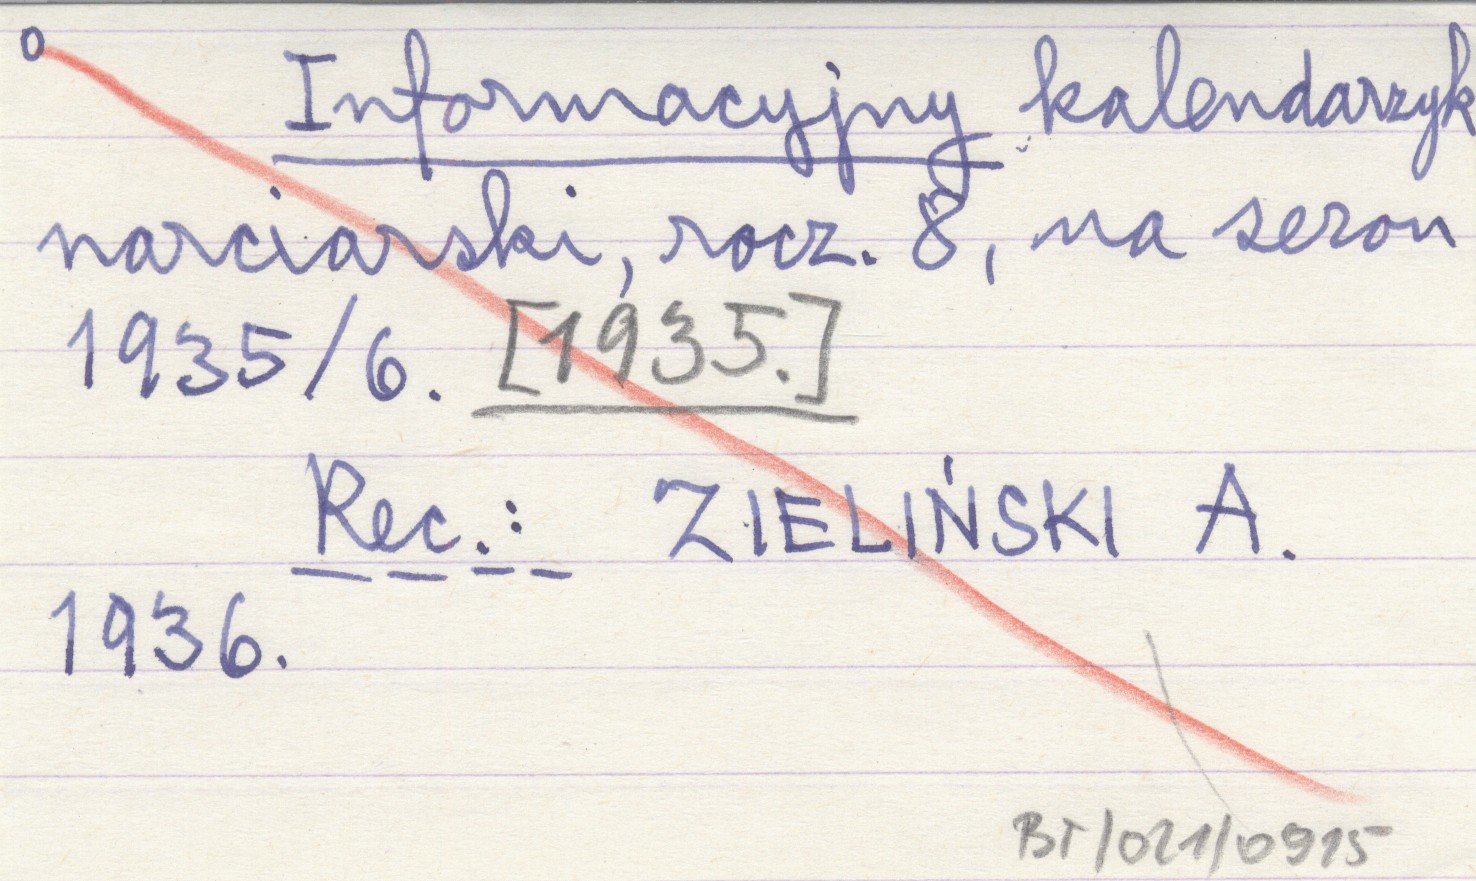 o Informacyjny kalendarzyk
narciarski, rocz. 8, na sezon
1935/6. [1935.]
Rec.: ZIELIŃSKI A.
1936.
BT/021/0915